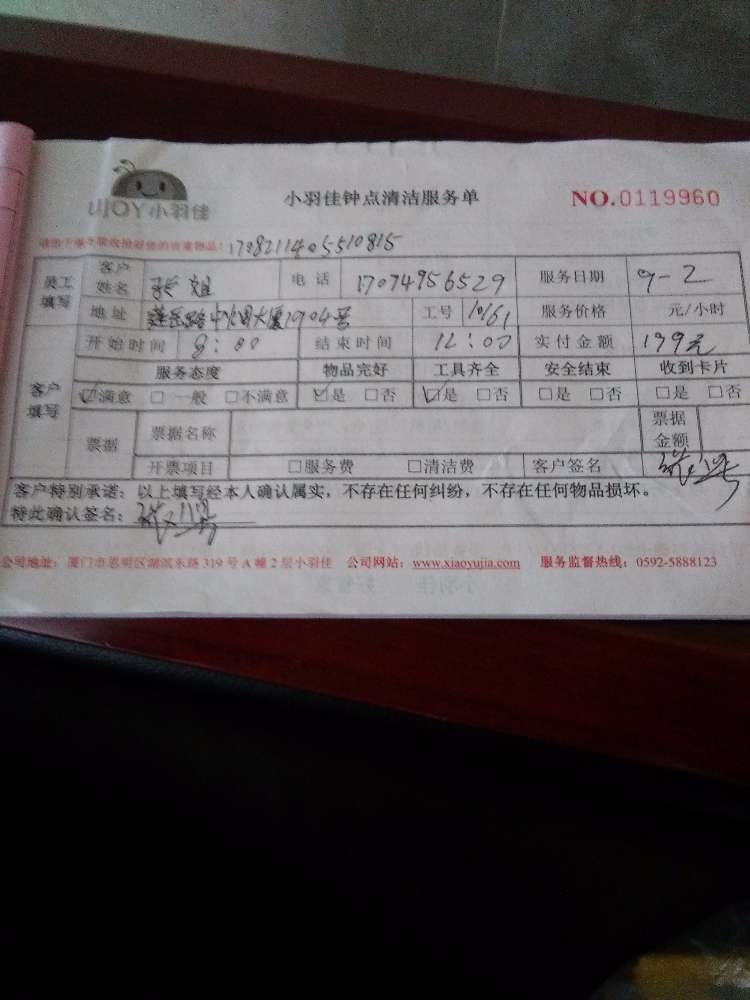 UJOY小羽佳
小羽佳钟点清洁服务单
NO.0119960
1708211405510815
员工填写 客户姓名 张姐 电话 17074956529 服务日期 9-2
地址 莲岳路 大厦1904 工号 1061 服务价格 元/小时
开始时间 8:00 结束时间 12:00 实付金额 199元
客户填写 服务态度 物品完好 工具齐全 安全结束 收到卡片
☑满意 □一般 □不满意 ☑是 □否 ☑是 □否 □是 □否 □是 □否
票据 票据名称 票据金额
开票项目 □服务费 □清洁费 客户签名
客户特别承诺：以上填写经本人确认属实，不存在任何纠纷，不存在任何物品损坏。
特此确认签名：
公司地址：厦门市思明区湖滨东路 319 号 A 幢 2 层小羽佳 公司网站：www.xiaoyujia.com 服务监督热线：0592-5888123